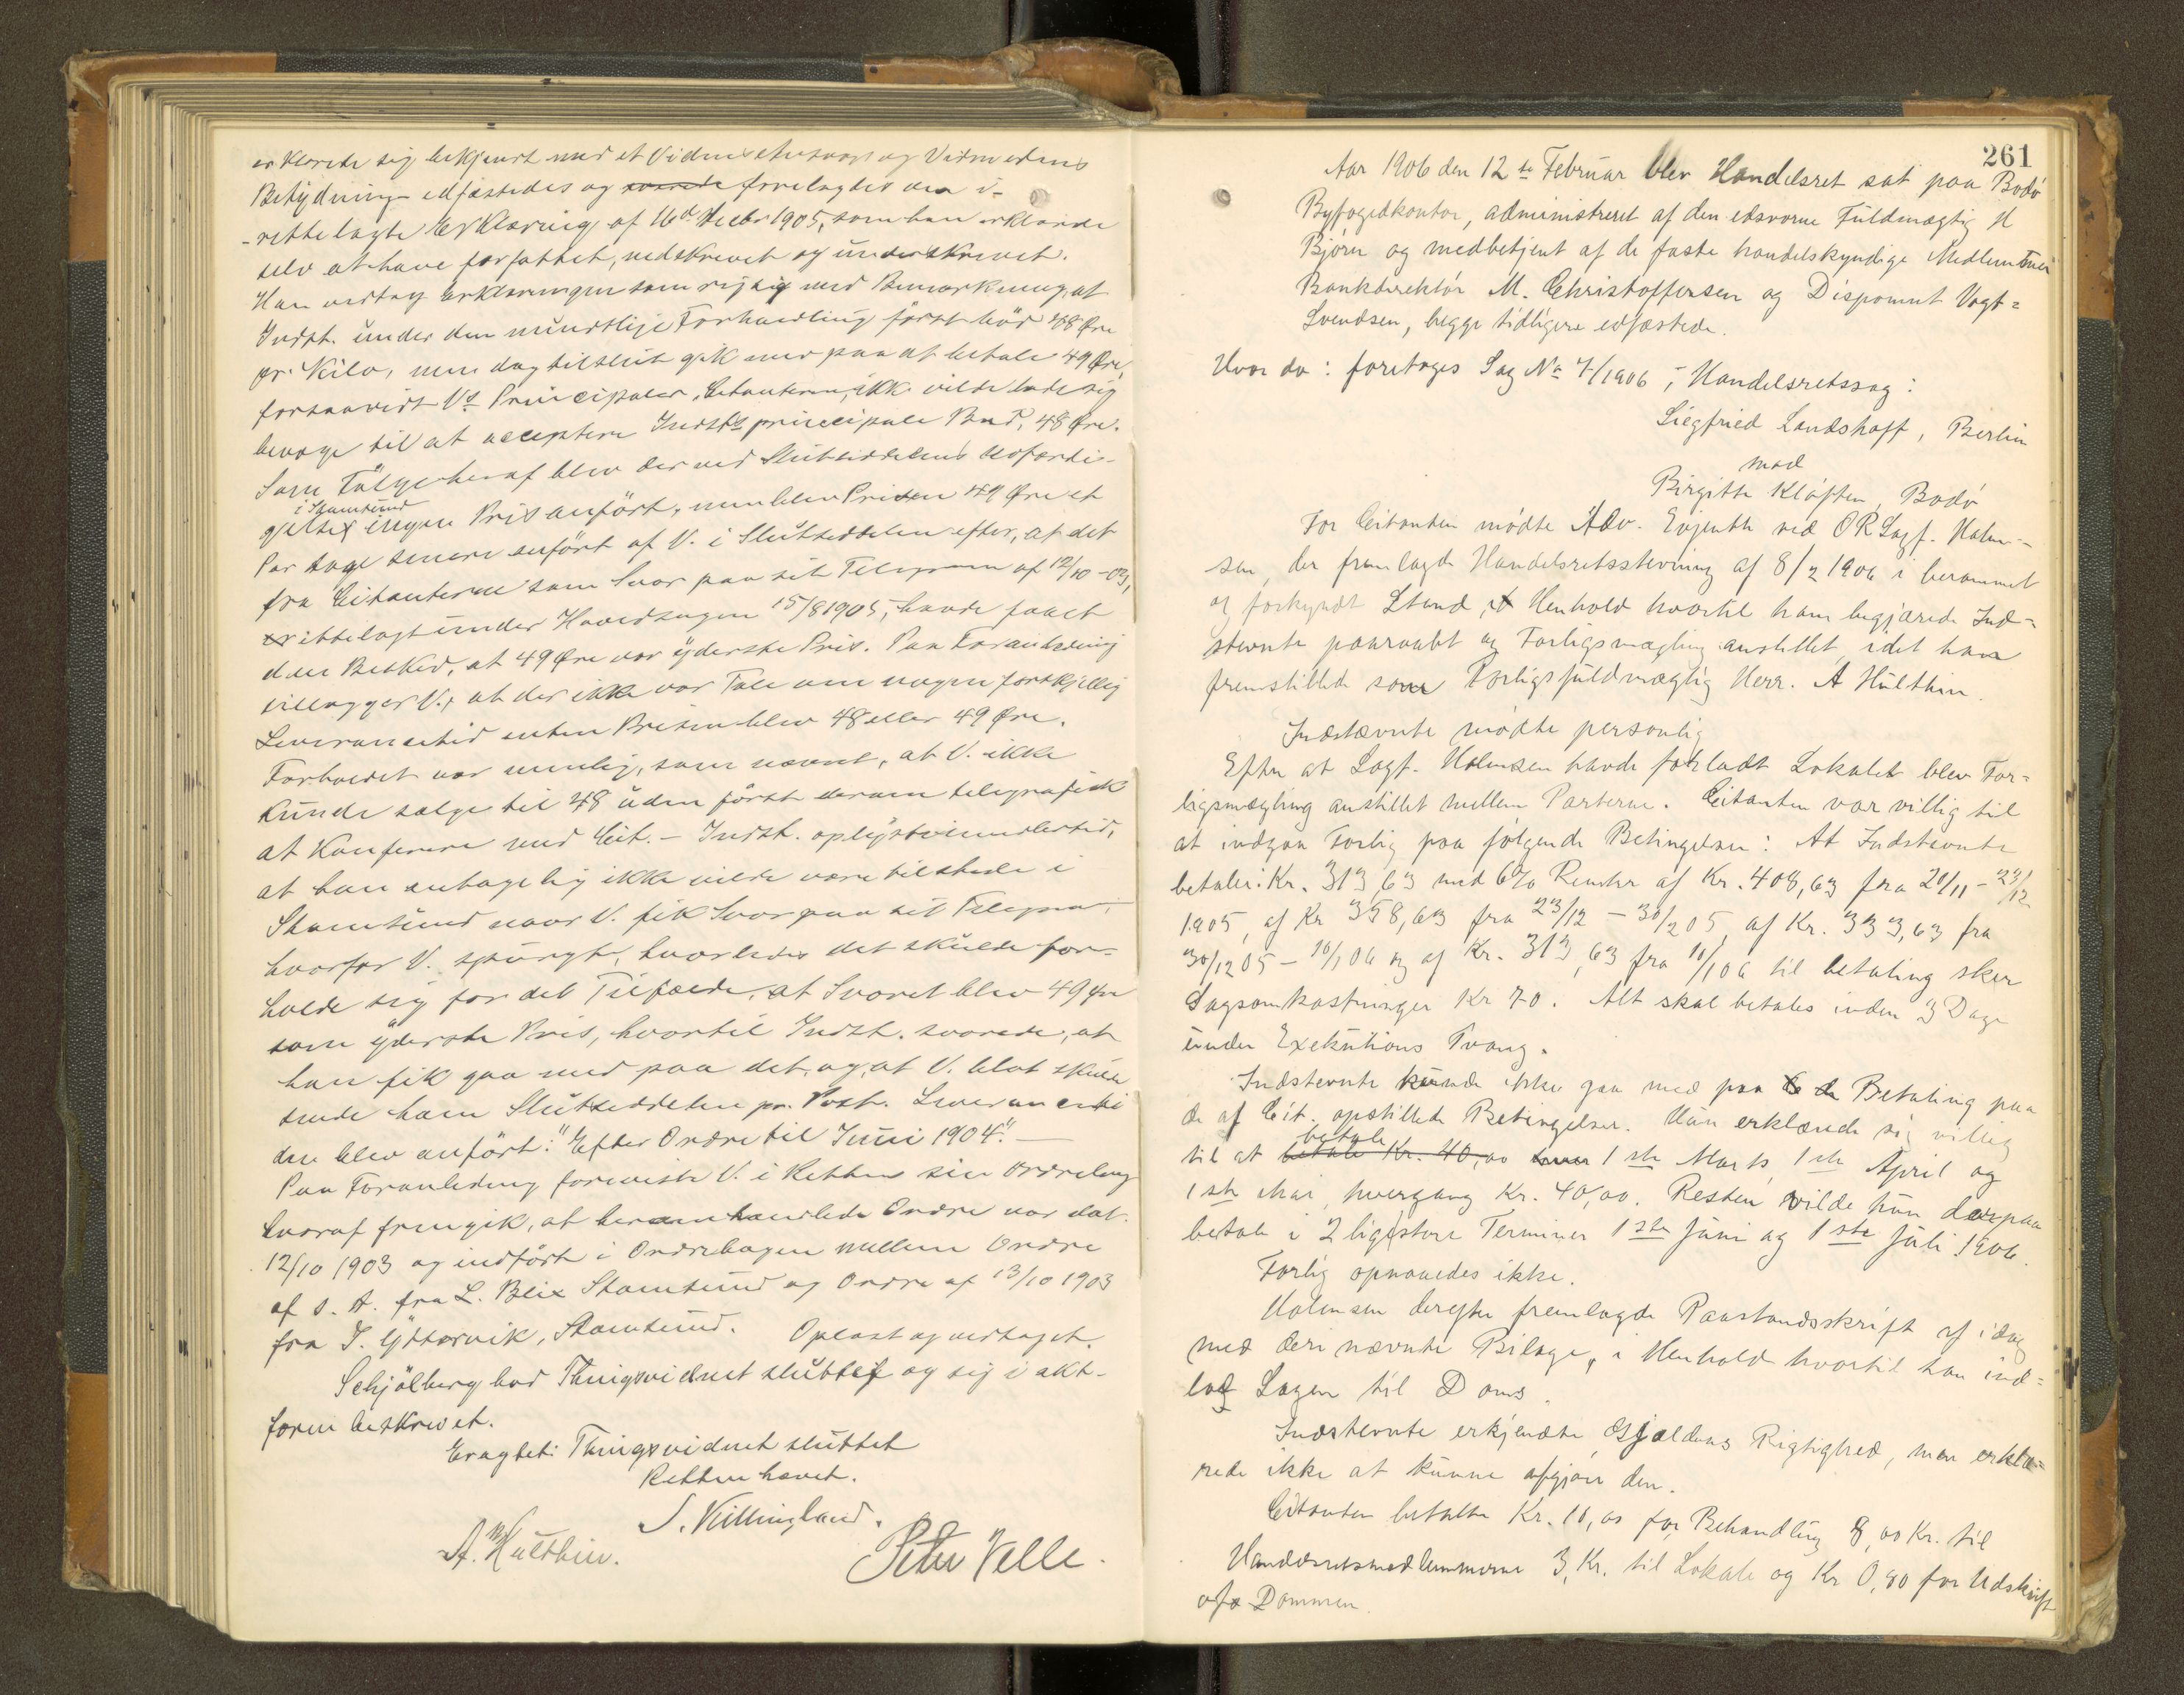 erklærede sig bekjendt med et Vidnes Ansvar og Vidneedens
Betydning edfæstedes og svarede forelagdes den i-
rettelagte Erklæring af 16d Decbr 1905, som han erklærede
selv at have forfattet, nedskrevet og underskrevet.
Han vedtog Erklæringen som rigtig med Bemærkning, at
Indst. under den mundtlige Forhandling først bød 48 Øre
pr. Kilo, men dog tilslut gik med paa at betale 49 Øre,
forsaavidt Vs Principaler, Citanterne, ikke vilde lade sig
bevæge til at acceptere Indsts principale Bud, 48 Øre.
Som Følge heraf blev der ved Slutseddelens Udfærdi-
i Stamsund
gelse ingen Pris anført, men blev Prisen 49 Øre et
Par Dage senere anført af V. i Slutseddelen efter, at det
fra Citanterne som Svar paa sit Telegram af 12/10-03,
irettelagt under Hovedsagen 15/8 1905, havde faaet
den Besked, at 49 Øre var yderste Pris. Paa Foranledning
tillægger V., at der ikke var Tale om nogen forskjellig
Leverancetid enten Prisen blev 48 eller 49 Øre.
Forholdet var nemlig, som nævnt, at V. ikke
kunde sælge til 48 uden først derom telegrafisk
at konferere med Cit. – Indst. oplyste imidlertid,
at han antagelig ikke vilde være tilstede i
Stamsund naar V. fik Svar paa sit Telegram
hvorfor V. spurgte, hvorledes det skulde for-
holde sig for det Tilfælde, at Svaret blev 49 Øre
som yderste Pris, hvortil Indst. svarede, at
han fik gaa med paa det, og at V. blot skulde
sende ham Slutseddelen pr. Post. Leveranceti
den blev anført: "Efter Ordre til Juni 1904". —
Paa Foranledning foreviste V. i Retten sin Ordrebog
hvoraf fremgik, at heromhandlede Ordre var dat.
12/10 1903 og indført i Ordrebogen mellem Ordre
af s. D. fra L. Blix Stamsund og Ordre af 13/10 1903
fra J. Yttervik, Stamsund. Oplæst og vedtaget.
Schjølberg bad Thingsvidnet sluttet og sig i akt-
form beskrevet.
Eragtet: Thingsvidnet sluttet
Retten hævet.
S. Killingland.
A. Hulthin.
Peter Velle.
261
Aar 1906 den 12te Februar blev Handelsret sat paa Bodø
Byfogedkontor, administreret af den edsvorne Fuldmægtig H
Bjørn og medbetjent af de faste handelskyndige Medlemmer
Bankdirektør M. Christoffersen og Disponent Vogt=
Svendsen, begge tidligere edfæstede.
Hvor da: foretoges Sag No 7/1906, Handelsretssag:
Siegfried Landshoff, Berlin
mod
Birgitte Kløften, Bodø
For Citanten mødte Adv. Evjenth ved ORSagf. Holm-
sen, der fremlagde Handelsretsstevning af 8/2 1906 i berammet
og forkyndt Stand, i Henhold hvortil han begjærede Ind-
stevnte paaraabt og Forligsmægling anstillet, idet han
fremstillede som Forligsfuldmægtig Herr. A Hulthin.
Indstævnte mødte personlig
Efter at Sagf. Holmsen havde forladt Lokalet blev For-
ligsmægling anstillet mellem Parterne. Citanten var villig til
at indgaa Forlig paa følgende Betingelser: At Indstevnte
betaler: Kr. 313,63 med 6% Renter af Kr. 408,63 fra 21/11 – 23/12
1905, af Kr 358,63 fra 23/12 – 30/12 05, af Kr. 333,63 fra
30/12 05 – 10/1 06 og af Kr. 313,63 fra 10/1 06 til betaling sker
Sagsomkostninger Kr 70. Alt skal betales inden 3 Dage
under Exekutions Tvang.
Indstevnte kunde ikke gaa med paa Betaling paa
de af Cit. opstillede Betingelser. Hun erklærede sig villig
betale
til at betale Kr. 40,00 1ste Marts, 1ste April og
1ste Mai, hvergang Kr. 40,00. Resten vilde hun derpaa
betale i 2 ligestore Terminer 1ste Juni og 1ste Juli 1906.
Forlig opnaaedes ikke.
Holmsen derefter fremlagde Paastandsskrift af idag
med deri nævnte Bilage, i Henhold hvortil han ind=
lod Sagen til Doms.
Indstevnte erkjendte Gjældens Rigtighed, men erklæ=
rede ikke at kunne afgjøre den.
Citanten betalte Kr. 10,00 for Behandling 8,00 Kr. til
Handelsretsmedlemmerne 3, Kr. til Lokale og Kr 0,80 for Udskrift
af Dommen.